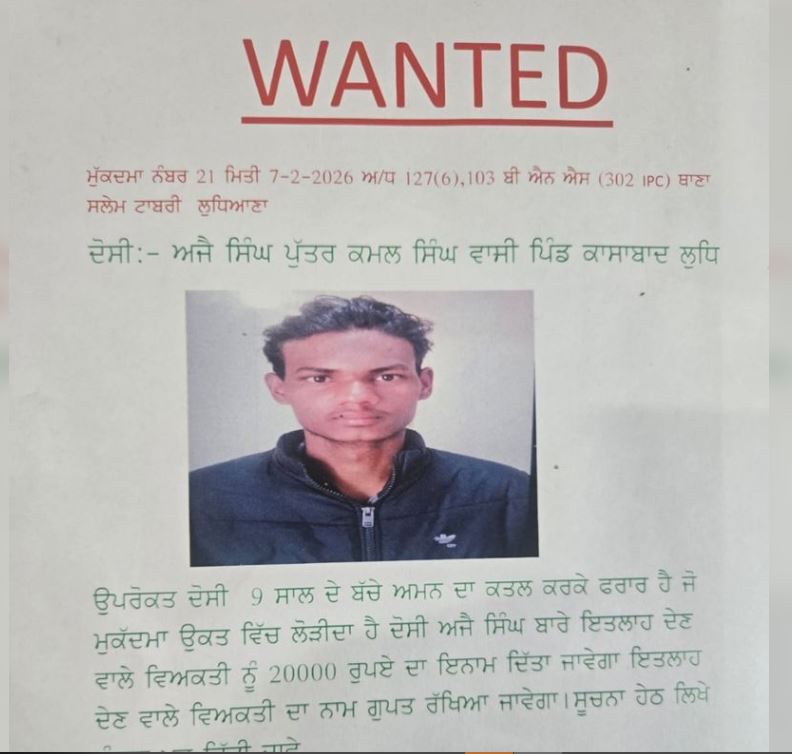 WANTED
ਮੁੱਕਦਮਾ ਨੰਬਰ 21 ਮਿਤੀ 7-2-2026 ਅ/ਧ 127(6),103 ਬੀ ਐਨ ਐਸ (302 IPC) ਥਾਣਾ
ਸਲੇਮ ਟਾਬਰੀ ਲੁਧਿਆਣਾ
ਦੋਸੀ:- ਅਜੈ ਸਿੰਘ ਪੁੱਤਰ ਕਮਲ ਸਿੰਘ ਵਾਸੀ ਪਿੰਡ ਕਾਸਾਬਾਦ ਲੁਧਿ
ਉਪਰੋਕਤ ਦੋਸੀ 9 ਸਾਲ ਦੇ ਬੱਚੇ ਅਮਨ ਦਾ ਕਤਲ ਕਰਕੇ ਫਰਾਰ ਹੈ ਜੋ
ਮੁਕੱਦਮਾ ਉਕਤ ਵਿੱਚ ਲੋੜੀਦਾ ਹੈ ਦੋਸੀ ਅਜੈ ਸਿੰਘ ਬਾਰੇ ਇਤਲਾਹ ਦੇਣ
ਵਾਲੇ ਵਿਅਕਤੀ ਨੂੰ 20000 ਰੁਪਏ ਦਾ ਇਨਾਮ ਦਿੱਤਾ ਜਾਵੇਗਾ ਇਤਲਾਹ
ਦੇਣ ਵਾਲੇ ਵਿਅਕਤੀ ਦਾ ਨਾਮ ਗੁਪਤ ਰੱਖਿਆ ਜਾਵੇਗਾ।ਸੂਚਨਾ ਹੇਠ ਲਿਖੇ